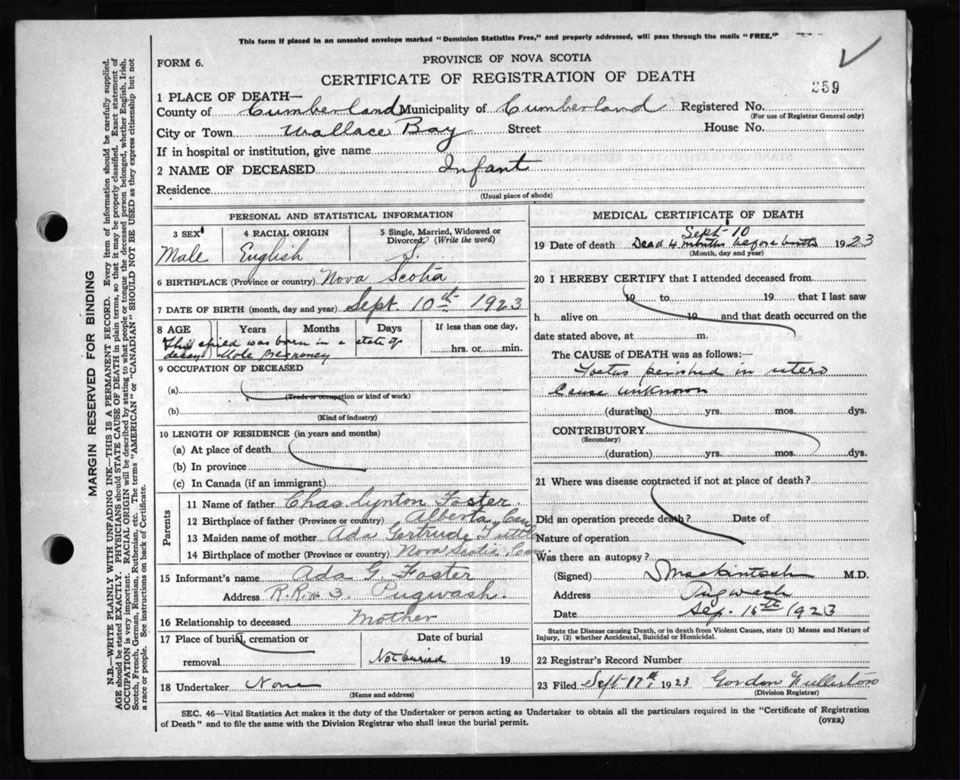 This form if placed in an unsealed envelope marked "Dominion Statistics Free," and properly addressed, will pass through the mails "FREE."
FORM 6.
PROVINCE OF NOVA SCOTIA
CERTIFICATE OF REGISTRATION OF DEATH
359
1 PLACE OF DEATH—
County of Cumberland Municipality of Cumberland Registered No.
(For use of Registrar General only)
City or Town Wallace Bay Street House No.
If in hospital or institution, give name
2 NAME OF DECEASED Infant
Residence
(Usual place of abode)
PERSONAL AND STATISTICAL INFORMATION
3 SEX 4 RACIAL ORIGIN 5 Single, Married, Widowed or Divorced (Write the word)
Male English S.
6 BIRTHPLACE (Province or country) Nova Scotia
7 DATE OF BIRTH (month, day and year) Sept. 10th 1923
8 AGE Years Months Days If less than one day,
hrs. or min.
This child was born in a state of
decay
9 OCCUPATION OF DECEASED
(a)
(Trade or occupation or kind of work)
(b)
(Kind of industry)
10 LENGTH OF RESIDENCE (in years and months)
(a) At place of death
(b) In province
(c) In Canada (if an immigrant)
Parents
11 Name of father Chas. Lynton Foster
12 Birthplace of father (Province or country) Alberta, Can
13 Maiden name of mother Ada Gertrude Tuttle
14 Birthplace of mother (Province or country) Nova Scotia, Can.
15 Informant's name Ada G. Foster
Address R.R. # 3. Pugwash.
16 Relationship to deceased Mother
17 Place of burial, cremation or removal
Date of burial
Not buried 19
18 Undertaker None
(Name and address)
MEDICAL CERTIFICATE OF DEATH
Sept-10
19 Date of death Dead 4 months before birth 1923
(Month, day and year)
20 I HEREBY CERTIFY that I attended deceased from
19 to 19 that I last saw
h alive on 19 and that death occurred on the date
stated above, at m.
The CAUSE of DEATH was as follows:—
Foetus perished in utero
Cause unknown
(duration) yrs. mos. dys.
CONTRIBUTORY
(Secondary)
(duration) yrs. mos. dys.
21 Where was disease contracted if not at place of death?
Did an operation precede death? Date of
Nature of operation
Was there an autopsy?
(Signed) S Mackintosh M.D.
Address Pugwash
Date Sep. 16th 1923
State the Disease causing Death, or in death from Violent Causes, state (1) Means and Nature of
Injury, (2) whether Accidental, Suicidal or Homicidal.
22 Registrar's Record Number
23 Filed Sept 17th 1923 Gordon Fullerton
(Division Registrar)
SEC. 46—Vital Statistics Act makes it the duty of the Undertaker or person acting as Undertaker to obtain all the particulars required in the "Certificate of Registration
of Death" and to file the same with the Division Registrar who shall issue the burial permit.
(OVER)
MARGIN RESERVED FOR BINDING
N.B.—WRITE PLAINLY WITH UNFADING INK—THIS IS A PERMANENT RECORD. Every item of information should be carefully supplied.
AGE should be stated EXACTLY. PHYSICIANS should STATE CAUSE OF DEATH in plain terms, so that it may be properly classified. Exact statement of
OCCUPATION is very important. RACIAL ORIGIN will be described by stating to what people or tongue the deceased person belonged, whether English, Irish,
Scotch, French, German, Russian, Ruthenian, etc. The terms "AMERICAN" or "CANADIAN" SHOULD NOT BE USED as they express citizenship but not
a race or people. See instructions on back of Certificate.